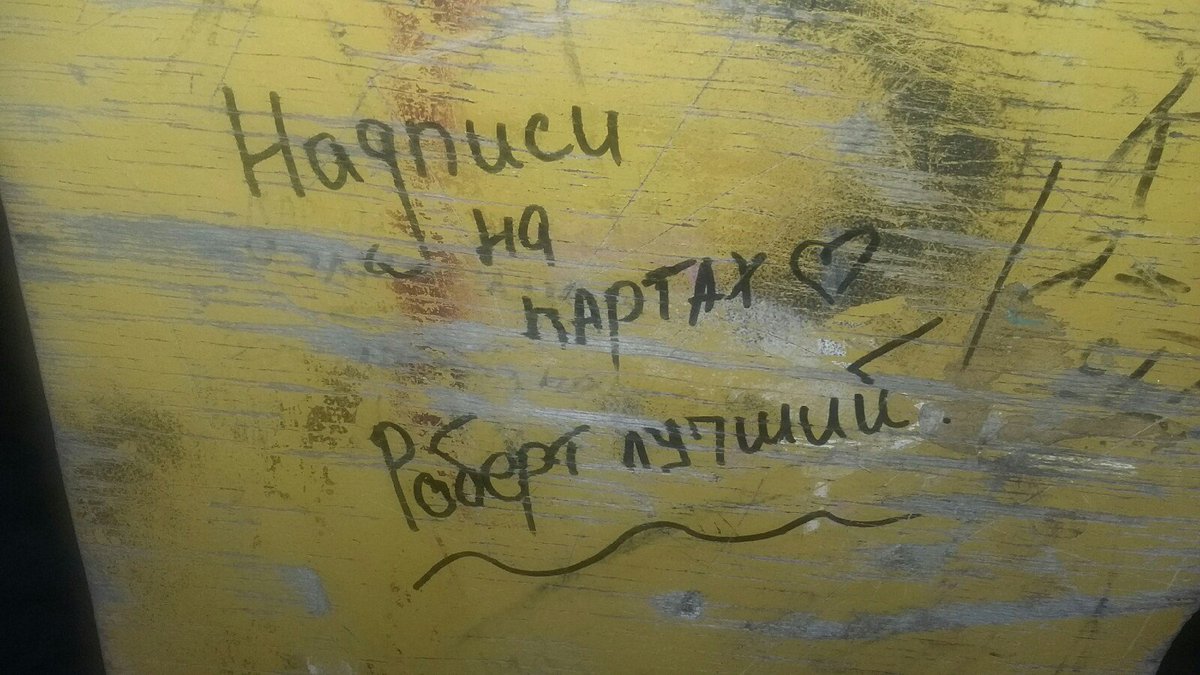 Надписи
на
картах
Роберт лучший.